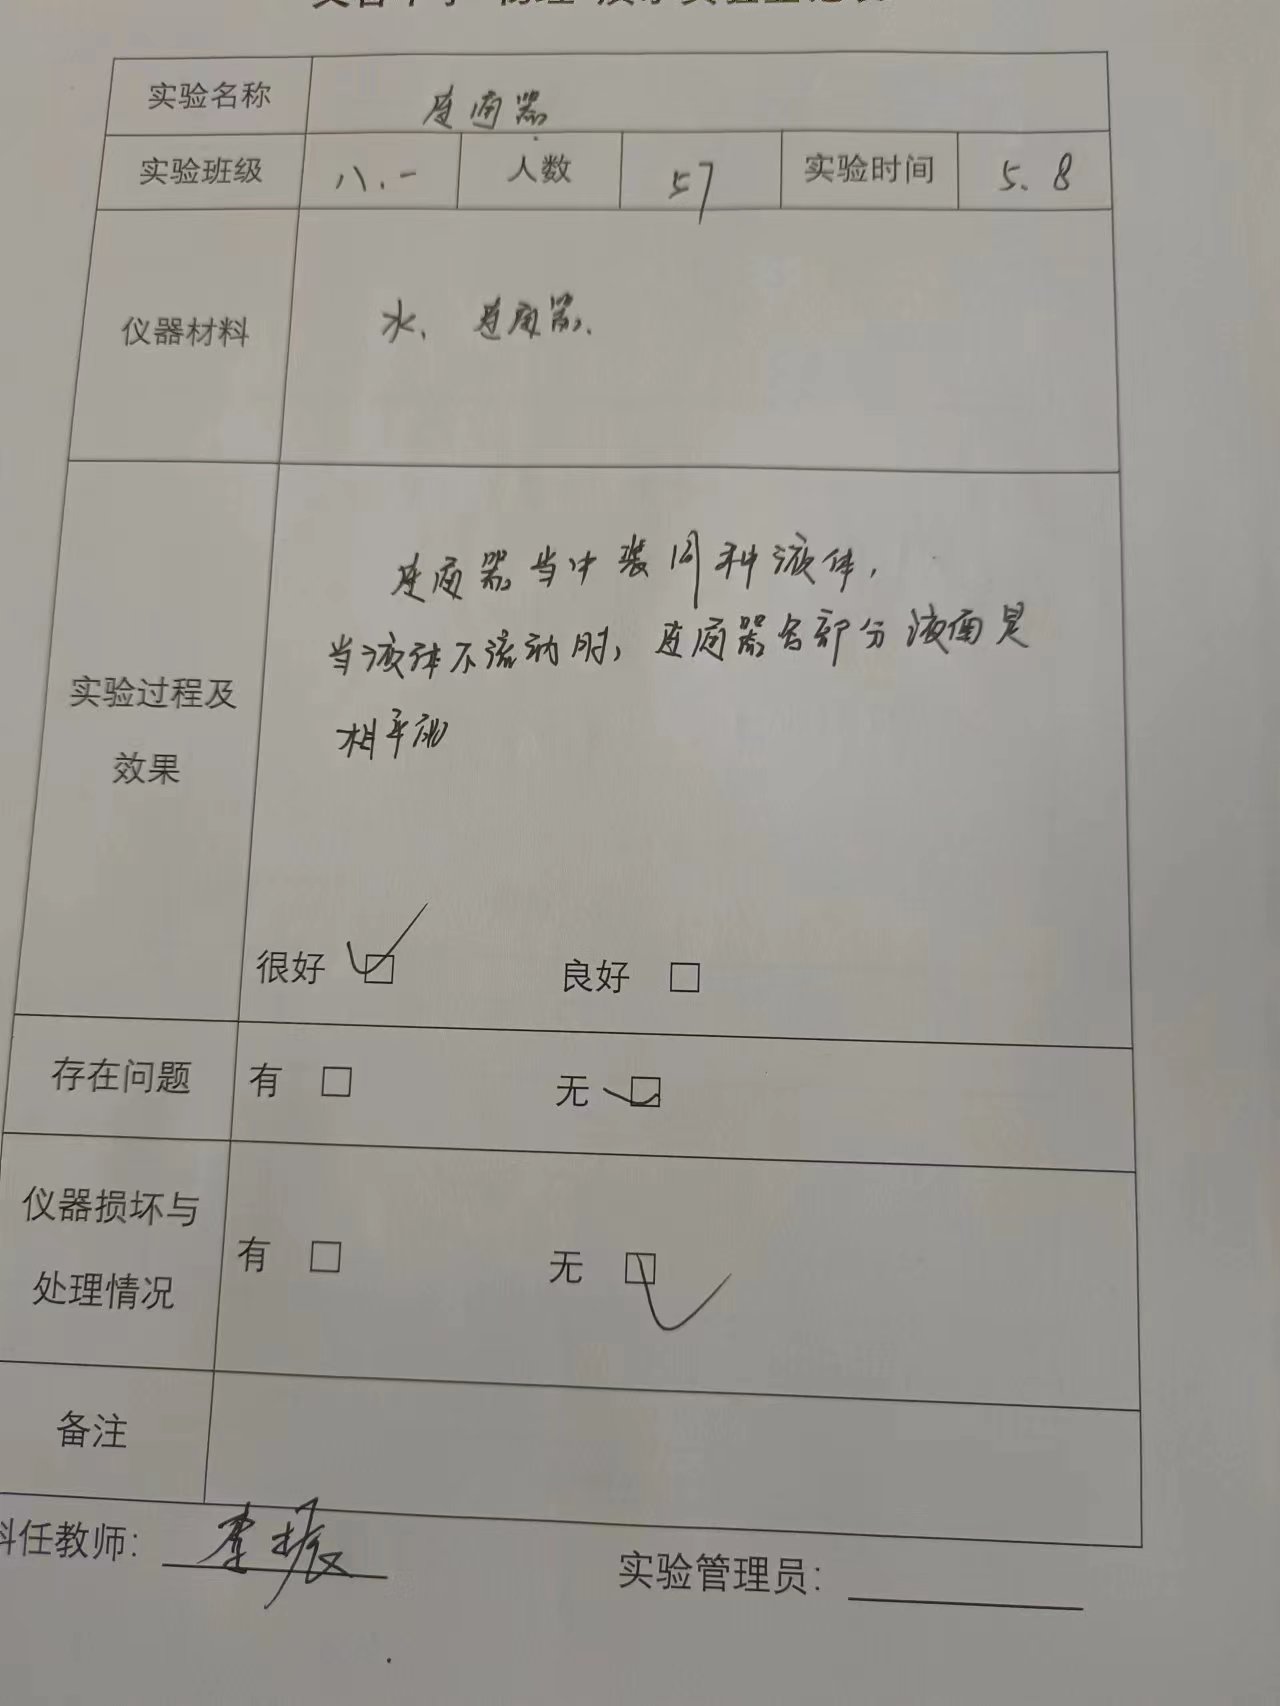 物理 演示实验登记表
实验名称 连通器
实验班级 八.一 人数 57 实验时间 5.8
仪器材料 水、连通器.
连通器当中装同种液体,
当液体不流动时,连通器各部分液面是
相平的
实验过程及
效果
很好 ☑ 良好 □
存在问题 有 □ 无 ☑
仪器损坏与
处理情况
有 □ 无 ☑
备注
科任教师: 李振 实验管理员: